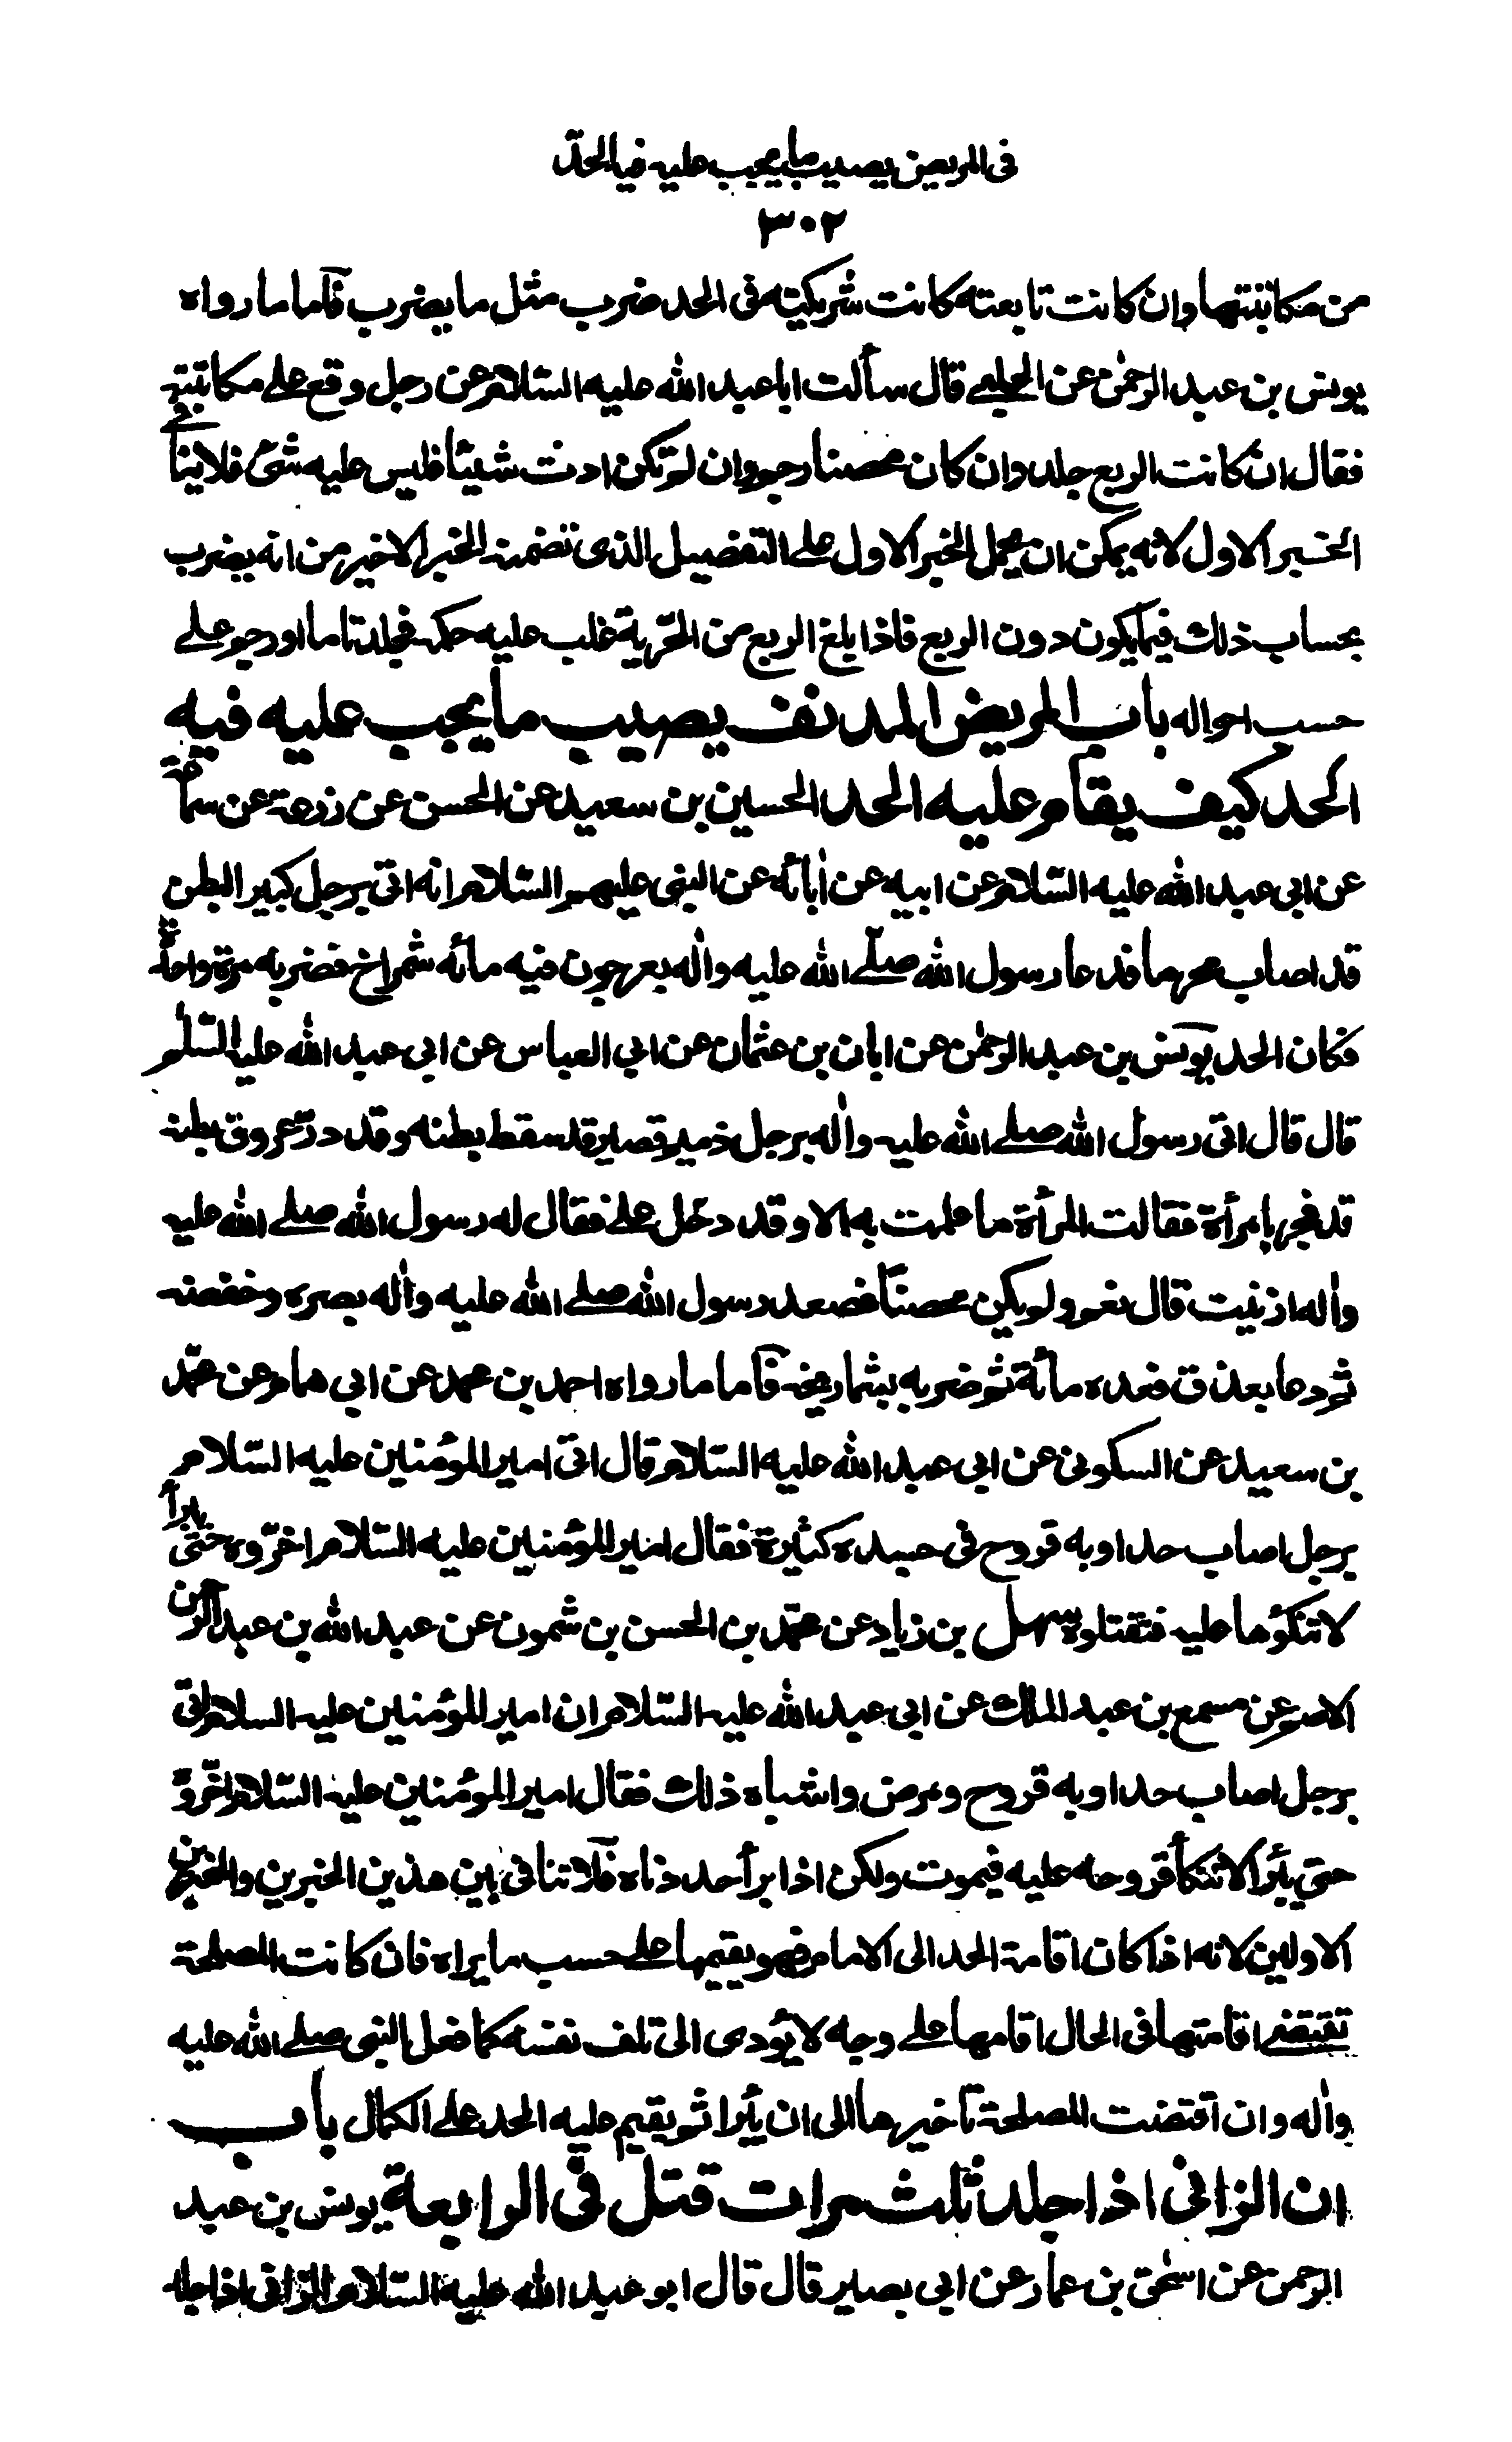 فى المريض يصيب ما يجب عليه فيه الحدّ
٣٠٢
من مكاتبتها وان كانت تابعته كانت شريكته فى الحد ضرب مثل ما يضرب فآما ما رواه
يونس بن عبد الرحمٰن عن الحلبى قال سألت ابا عبد الله عليه السّلام عن رجل وقع على مكاتبته
فقال ان كانت الربع جلد وان كان محصنا رجم وان لم تكن ادت شيئا فليس عليه شئ فلا ينافى
الخبر الاول لانه يمكن ان يحمل الخبر الاول على التفصيل الذى تضمنه الخبر الاخير من انه يضرب
بحساب ذلك فيما يكون دون الربع فاذا بلغ الربع من الحّرية غلب عليه حكمه فجلد تاما او رجم على
حسب احواله باب المريض المدنف يصيب ما يجب عليه فيه
الحد كيف يقام عليه الحد الحسين بن سعيد عن الحسن عن زرعة عن سماعة
عن ابى عبد الله عليه السّلام عن ابيه عن اٰبائه عن النبى عليهم السّلام انه اتى برجل كبير البطن
قد اصاب محرما فدعا رسول الله صلّى الله عليه واٰله بعرجون فيه مائه شمراخ فضربه مرة واحدة
فكان الحد يونس بن عبد الرحمٰن عن ابان بن عثمان عن ابى العباس عن ابى عبد الله عليه السّلٰم
قال قال اتى رسول الله صلى الله عليه واٰله برجل ذمير قصير قد سقط بطنه وقد درّ عروق بطنه
قد فجر بامرأة فقالت المرأة ما علمت به الا وقد دخل على فقال له رسول الله صلى الله عليه
واٰله ازنيت قال نعم ولم يكن محصنا فصعد رسول الله صلى الله عليه واٰله بصره وخفضه
ثم دعا بعذق فعده مائة ثم ضربه بشماريخه فآما ما رواه احمد بن محمد عن ابى همام عن محمّد
بن سعيد عن السكونى عن ابى عبد الله عليه السّلام قال اتى امير المؤمنين عليه السّلام
برجل اصاب حدا وبه قروح فى جسده كثيرة فقال امير المؤمنين عليه السّلام اخّروه حتى يبرأ
لا تنكؤها عليه فتقتلوه سهل بن زياد عن محمّد بن الحسن بن شمون عن عبد الله بن عبد الرحمن
الاصم عن مسمع بن عبد الملك عن ابى عبد الله عليه السّلام ان امير المؤمنين عليه السلام اتى
برجل اصاب حدا وبه قروح ومرض واشباه ذلك فقال امير المؤمنين عليه السّلام اخّروه
حتى يبرأ لا تنكأ قروحه عليه فيموت ولكن اذا برأ حددناه فلآ تنافى بين هذين الخبرين والخبرين
الاولين لانه اذا كان اقامة الحد الى الامام فهو يقيمها على حسب ما يراه فان كانت المصلحة
تقتضى اقامتها فى الحال اقامها على وجه لا يؤدى الى تلف نفسه كما فعل النبى صلى الله عليه
واٰله وان اقتضت المصلحة تأخيرها الى ان يبرأ ثم يقيم عليه الحد على الكمال باب
ان الزانى اذا جلد ثلث مرات قتل فى الرابعة يونس بن عبد
الرحمن عن اسٰحق بن عمار عن ابى بصير قال قال ابو عبد الله عليه السّلام الزانى اذا جلد